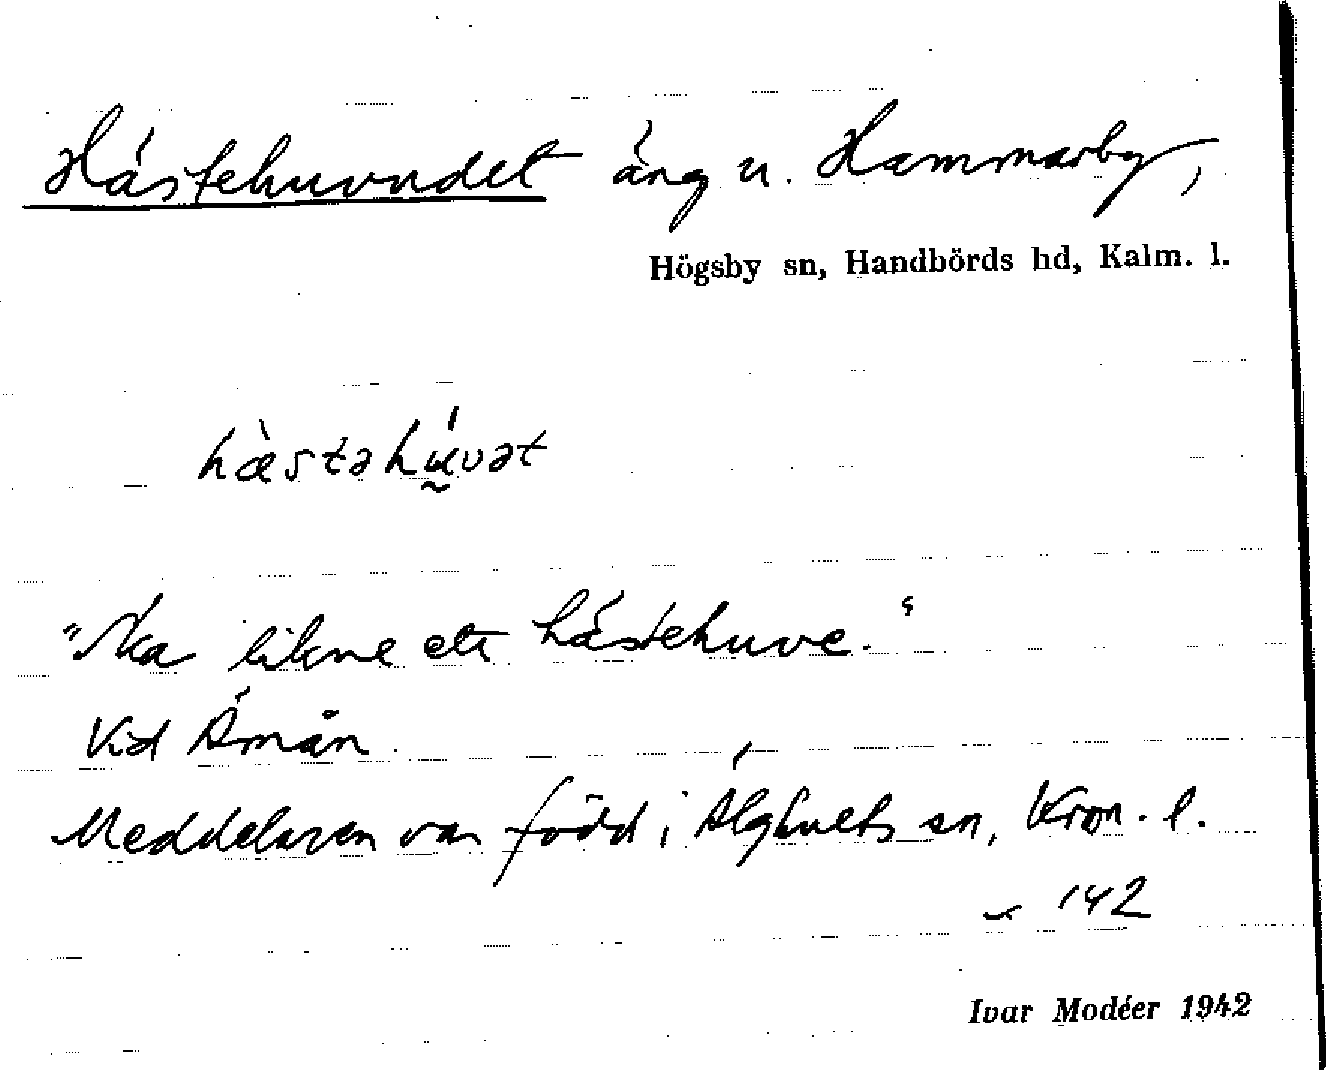 Hästehuvudet äng u. Hammarby,
Högsby sn, Handbörds hd, Kalm. l.
hàstəhúvət
"Ska likne ett hästehuve."
Vid Ämån
Meddelaren var född i Älghults sn, Kron. l.
142
Ivar Modéer 1942